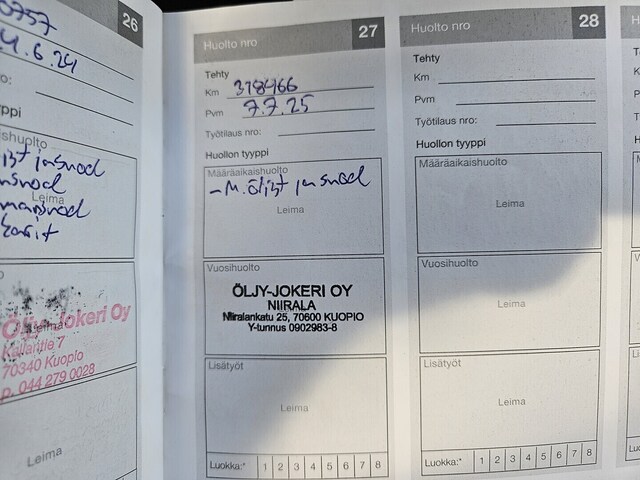 26
0757
4.6.24
ro:
yppi
aishuolto
Leima
Öljy-Jokeri Oy
Kallantie 7
70340 Kuopio
p. 044 279 0028
Leima
Huolto nro 27
Tehty
Km 318466
Pvm 7.7.25
Työtilaus nro:
Huollon tyyppi
Määräaikaishuolto
- M. öljyt ja suod
Leima
Vuosihuolto
ÖLJY-JOKERI OY
NIIRALA
Niiralankatu 25, 70600 KUOPIO
Y-tunnus 0902983-8
Lisätyöt
Leima
Luokka:* 1 2 3 4 5 6 7 8
Huolto nro 28
Tehty
Km
Pvm
Työtilaus nro:
Huollon tyyppi
Määräaikaishuolto
Leima
Vuosihuolto
Leima
Lisätyöt
Leima
Luokka:* 1 2 3 4 5 6 7 8